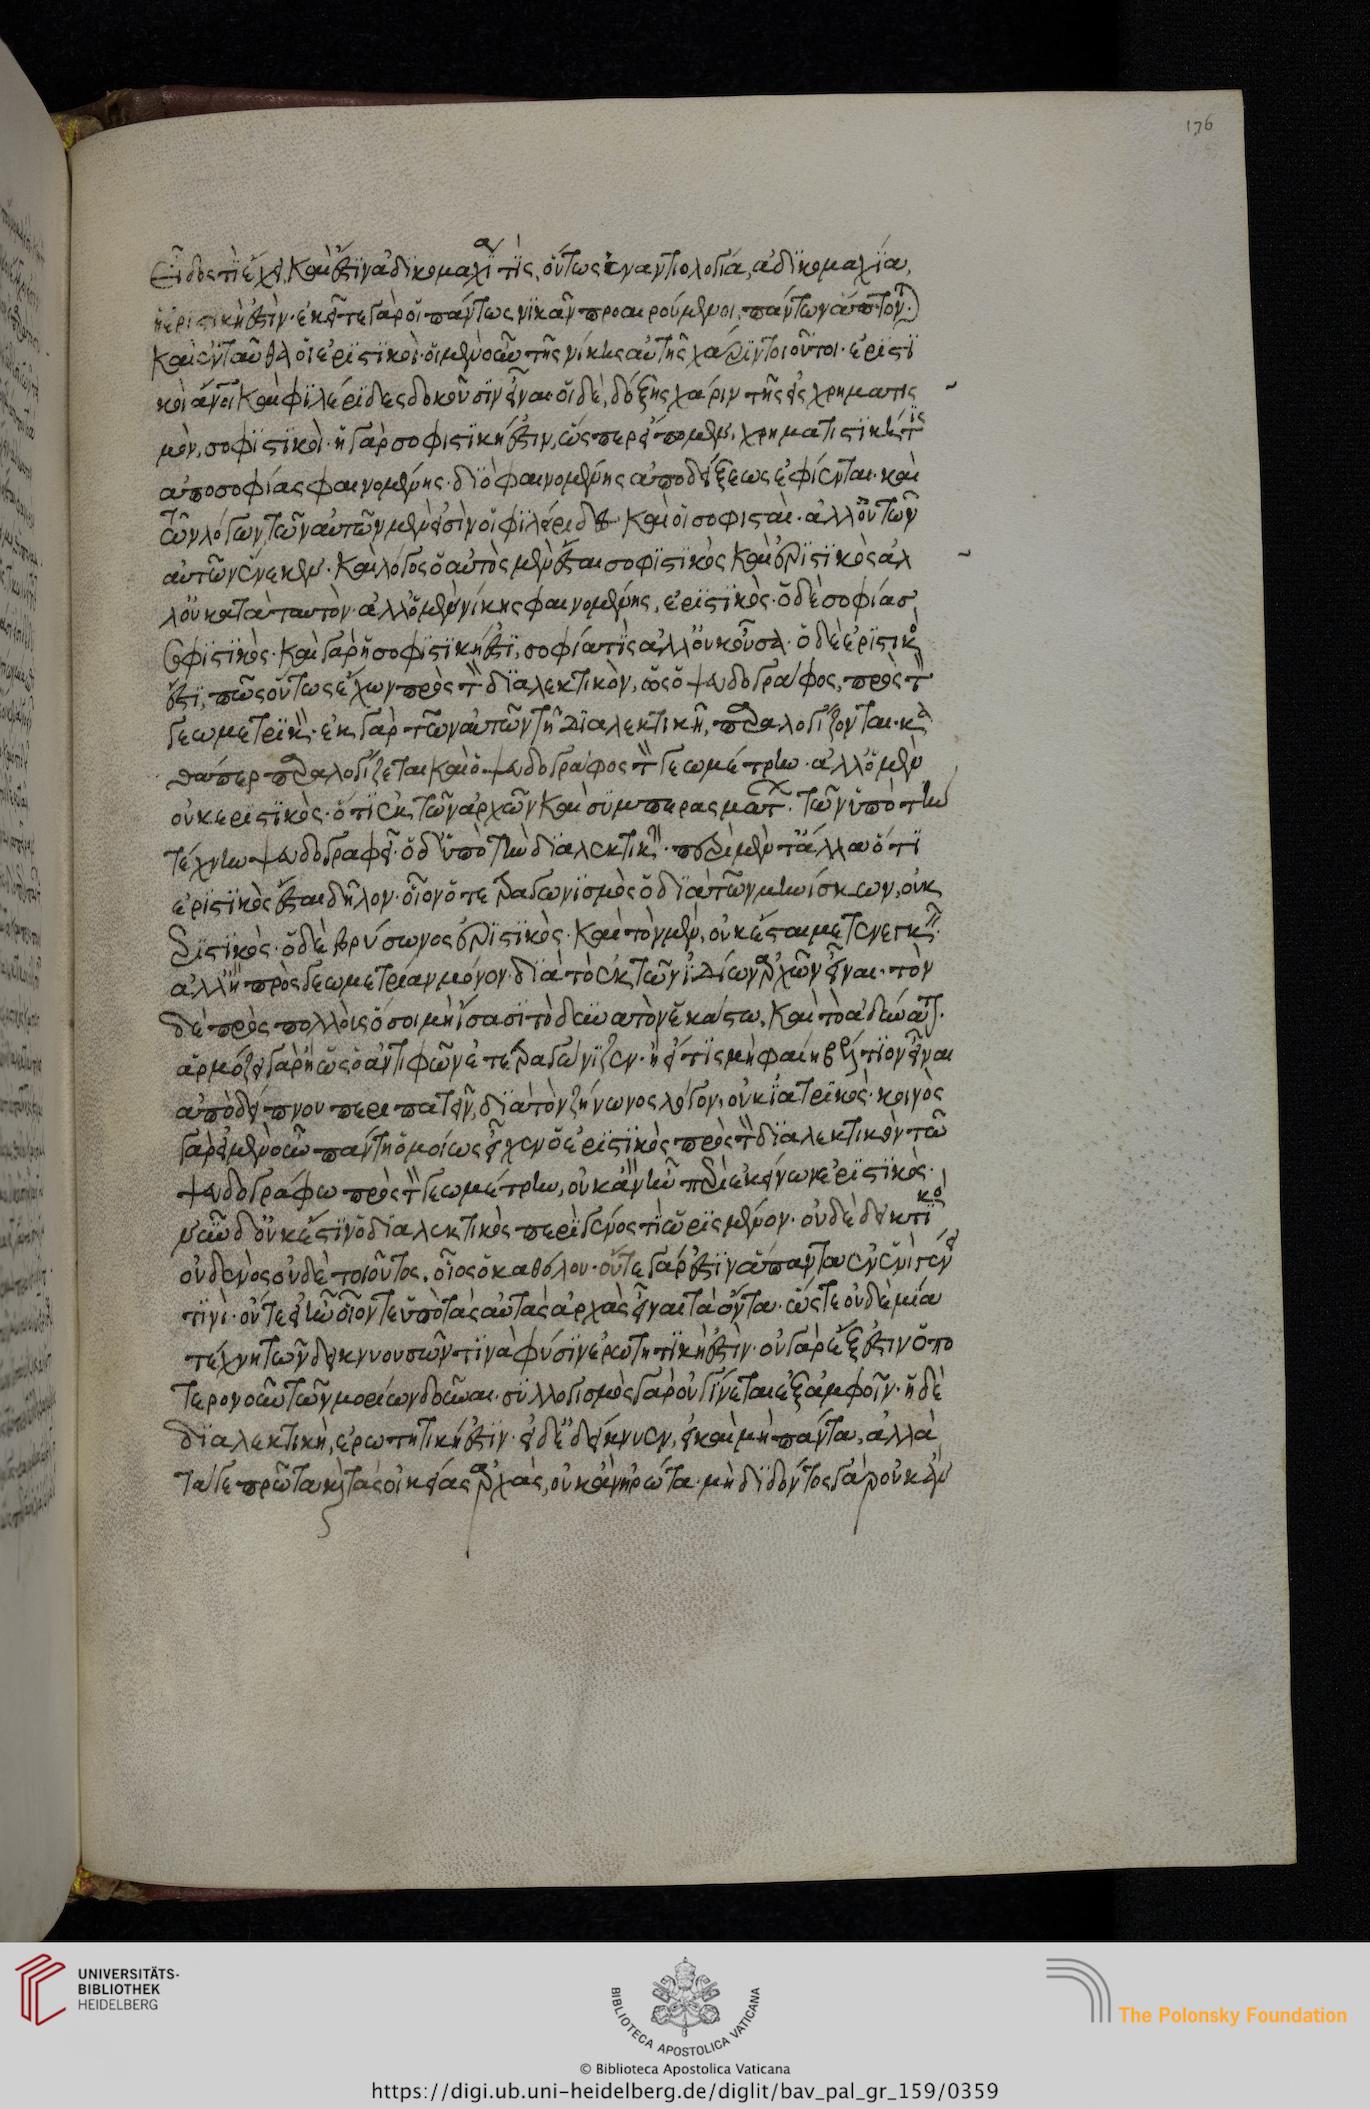 176
εἶδός τι ἔχει, καὶ ἔστιν ἀδικομαχία τίς, οὕτως ἐν ἀντιολογία, ἀδικομαχία,
ἡ ἐριστικὴ ἐστὶν· ἐκεῖ τε γὰρ οἱ πάντως νικᾶν προαιρούμενοι, πάντων ἅπτον(ται)·
καὶ ἐνταῦθα οἱ ἐριστικοὶ· οἱ μὲν οὖν τῆς νίκης αὐτῆς χάριν τοιοῦτοι· ἐριστι
κοὶ ἄν(θρωπ)οι καὶ φιλέριδες δοκοῦσιν εἶναι· οἱ δὲ, δόξης χάριν τῆς εἰς χρηματισ
μὸν, σοφιστικοὶ· ἡ γὰρ σοφιστική ἐστιν, ὥσπερ εἴπομεν, χρηματιστική τις
ἀπὸ σοφίας φαινομένης· διὸ φαινομένης ἀποδείξεως ἐφίενται· καὶ
τῶν λόγων τῶν αὐτῶν μὲν εἰσὶν οἱ φιλέριδες καὶ οἱ σοφισταὶ· ἀλλ' οὐ τῶν
αὐτῶν ἕνεκεν· καὶ λόγος ὁ αὐτὸς μὲν ἔσται σοφιστικὸς καὶ ἐριστικὸς ἀλ
λ' οὐ κατὰ ταυτὸν· ἀλλ' ᾗ μὲν νίκης φαινομένης, ἐριστικὸς· ᾗ δὲ σοφίας,
σοφιστικὸς· καὶ γὰρ ἡ σοφιστική ἐστι, σοφία τὶς ἀλλ' οὐκ οὖσα· ὁ δὲ ἐριστικὸς
ἐστι, πῶς οὕτως ἔχων πρὸς τὸν διαλεκτικὸν, ὡς ὁ ψευδογράφος, πρὸς τὸν
γεωμετρικὸν· ἐκ γὰρ τῶν αὐτῶν τῇ διαλεκτικῇ, παραλογίζονται· κα
θάπερ παραλογίζεται καὶ ὁ ψευδογράφος τὸν γεωμέτρην· ἀλλ' ὁ μὲν
οὐκ εριστικὸς· ὅτι ἐκ τῶν ἀρχῶν καὶ συμπερασμάτων· τῶν ὑπὸ τὴν
τέχνην ψευδογραφεῖ· ὁ δ' ὑπὸ τὴν διαλεκτικὴν· περὶ μὲν τἄλλα ὅτι
ἐριστικὸς ἔσται δῆλον· οἷον ὁ τετραγωνισμὸς ὁ διὰ τῶν μηνίσκων, οὐκ
ἐριστικὸς· ὁ δὲ βρύσωνος ἐριστικὸς· καὶ τὸν μὲν, οὐκ ἔσται μετενεγκεῖν
ἀλλ' ἢ πρὸς γεωμετρίαν μόνον· διὰ τὸ ἐκ τῶν ἰδίων ἀρχῶν εἶναι· τὸν
δὲ πρὸς πολλοὺς ὅσοι μὴ ἴσασι τὸ δυνατὸν ἑκάστω, καὶ τὸ ἀδύνατον·
ἁρμόσει γὰρ ἢ ὡς ὁ ἀντιφῶν ἐτετραγώνιζεν· ἢ εἴ τις μὴ φαίη βέλτιον εἶναι
ἀπὸ δείπνου περιπατεῖν, διὰ τὸν ζήνωνος λόγον, οὐκ ἰατρικὸς· κοινὸς
γὰρ· εἰ μὲν οὖν πάντη ὁμοίως εἶχεν ὁ ἐριστικὸς πρὸς τὸν διαλεκτικὸν τῶ
ψευδογράφω πρὸς τὸν γεωμέτρην, οὐκ ἂν ἦν περὶ ἐκείνων ἐριστικὸς·
νῦν δ' οὐκ ἔστιν ὁ διαλεκτικὸς περὶ γένος τὶ ὡρισμένον· οὐδὲ δεικτικὸς
οὐδενὸς οὐδὲ τοιοῦτος, οἷος ὁ καθόλου· οὔτε γάρ ἐστιν ἅπαντα ἐν ἑνὶ γένει
τινὶ· οὔτε εἰ εἴη οἷόν τε ὑπὸ τὰς αὐτὰς ἀρχὰς εἶναι τὰ ὄντα· ὥστε οὐδὲ μία
τέχνη τῶν δεικνυουσῶν τινὰ φύσιν ἐρωτητικὴ ἐστὶν· οὐ γὰρ ἔξεστιν ὁπο
τερονοῦν τῶν μορίων δοῦναι· συλλογισμὸς γὰρ οὐ γίνεται ἐξ ἀμφοῖν· ἡ δὲ
διαλεκτικὴ, ἐρωτητική ἐστιν· εἰ δ' ἐδείκνυεν, εἰ καὶ μὴ πάντα, ἀλλὰ
τά γε πρῶτα καὶ τὰς οἰκείας ἀρχὰς, οὐκ ἂν ἠρώτα· μὴ διδόντος γὰρ οὐκ ἂν
UNIVERSITÄTS-
BIBLIOTHEK
HEIDELBERG
BIBLIOTECA APOSTOLICA VATICANA
The Polonsky Foundation
© Biblioteca Apostolica Vaticana
https://digi.ub.uni-heidelberg.de/diglit/bav_pal_gr_159/0359